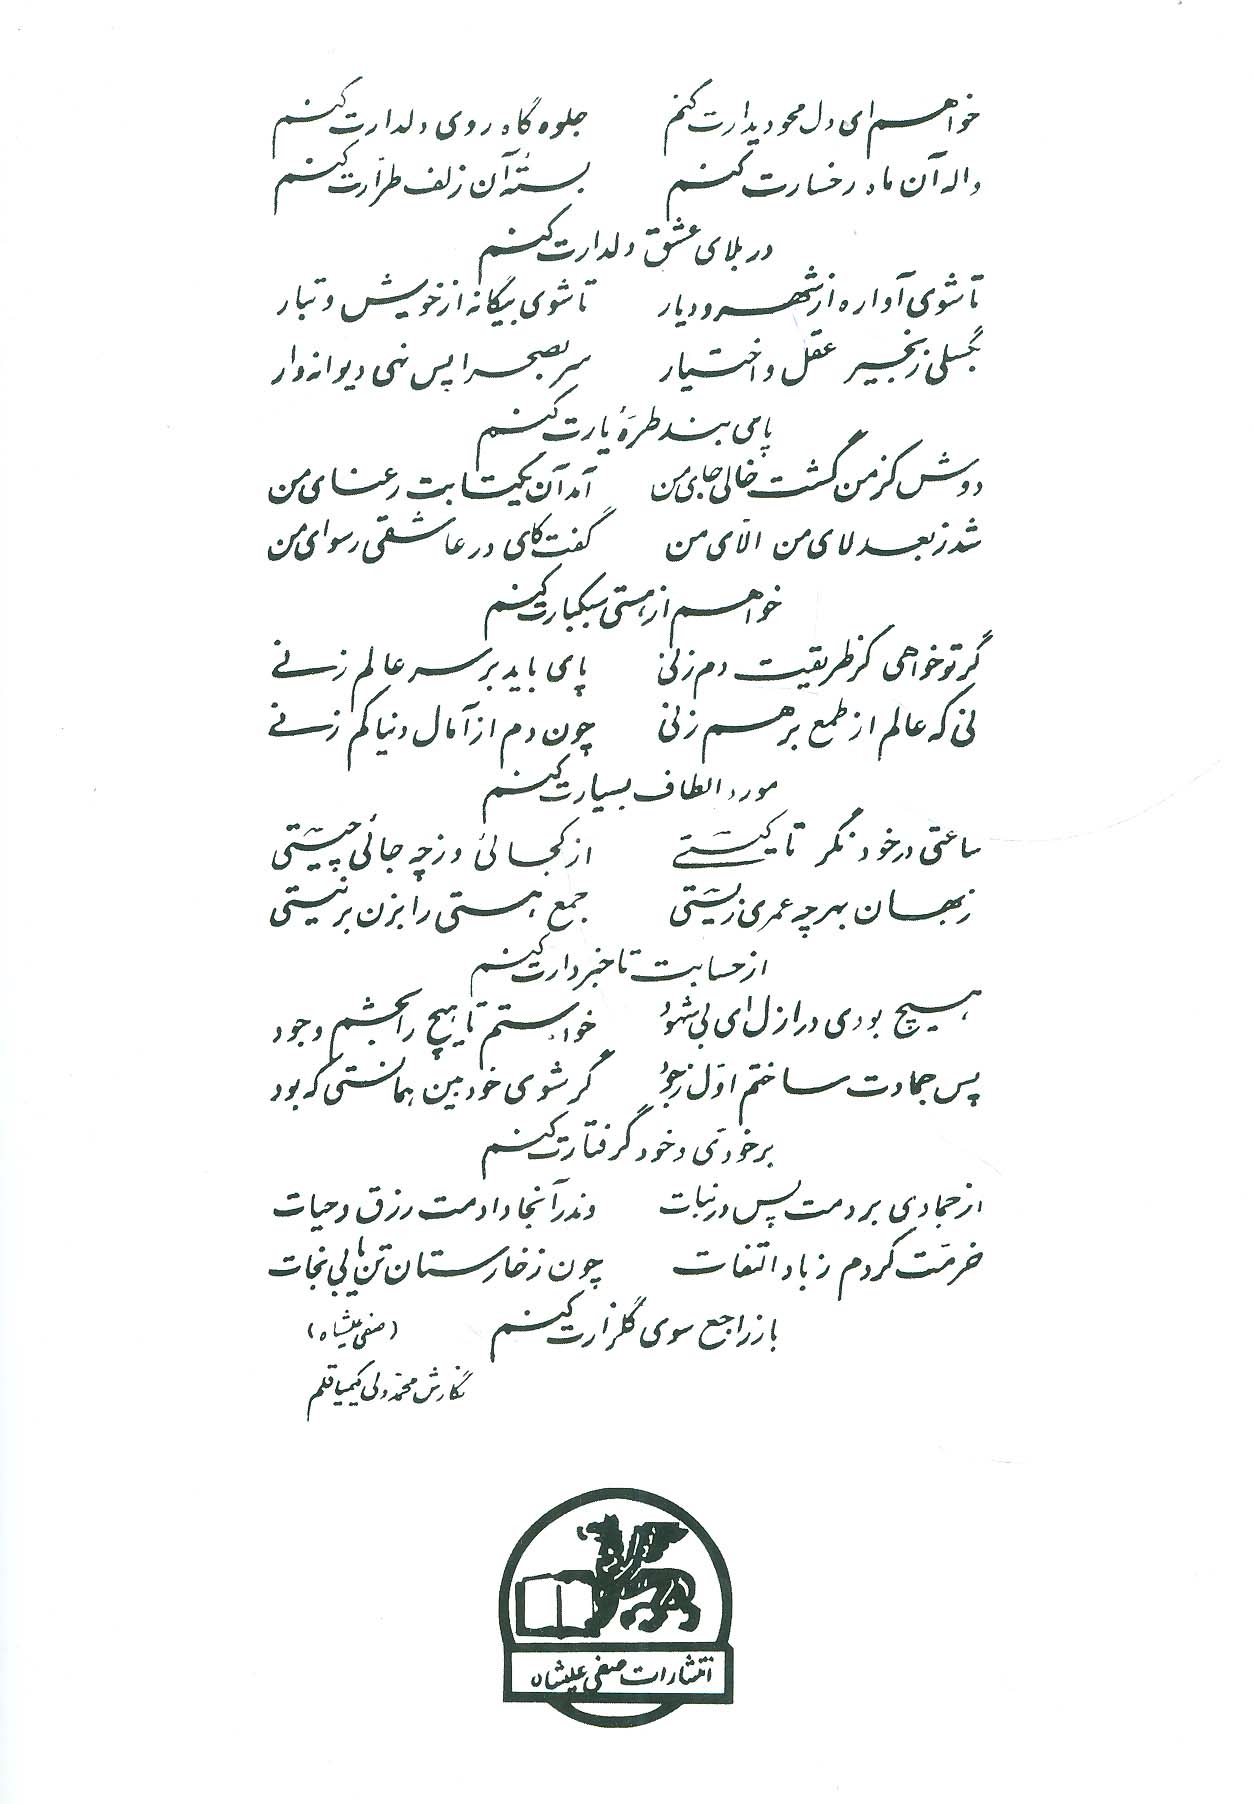 خواهم ای دل محو دیدارت کنم    جلوه گاه روی دلدارت کنم
واله آن ماه رخسارت کنم    بستهٔ آن زلف طرّارت کنم
در بلای عشق دلدارت کنم
تا شوی آواره از شهر و دیار    تا شوی بیگانه از خویش و تبار
بگسلی زنجیر عقل و اختیار    سر بصحرا پس نهی دیوانه وار
پای بند طرهٔ یارت کنم
دوش کز من گشت خالی جای من    آمد آن یکتا بت رعنای من
شد ز بعد لای من الّای من    گفت کای در عاشقی رسوای من
خواهم از هستی سبکبارت کنم
گر تو خواهی کز طریقت دم زنی    پای باید بر سر عالم زنی
نی که عالم از طمع برهم زنی    چون دم از آمال دنیا کم زنی
مورد الطاف بسیارت کنم
ساعتی در خود نگر تا کیستی    از کجائی وز چه جائی چیستی
در جهان بهر چه عمری زیستی    جمع هستی را بزن بر نیستی
از حسابت تا خبردارت کنم
هیچ بودی در ازل ای بی شهود    خواستم تا هیچ را بخشم وجود
پس جمادت ساختم اوّل ز جود    گر شوی خود بین همانستی که بود
بر خودی و خود گرفتارت کنم
از جمادی بردمت پس در نبات    وندر آنجا دادمت رزق و حیات
خرمّت کردم ز باد التفات    چون ز خارستان تن یابی نجات
باز راجع سوی گلزارت کنم    (صفی علیشاه)
نگارش محمّد ولی کیمیا قلم
انتشارات صفی علیشاه